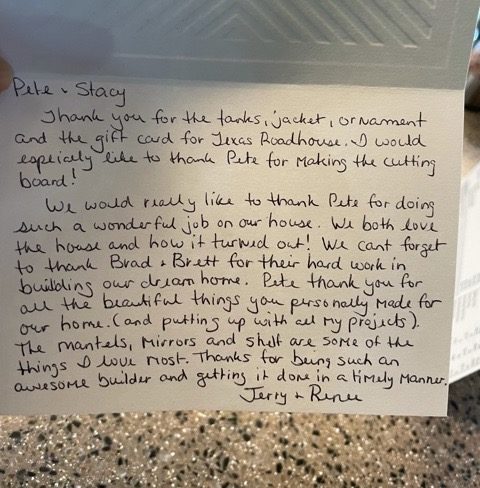 Pete + Stacy
Thank you for the tanks, jacket, ornament
and the gift card for Texas Roadhouse. I would
especially like to thank Pete for making the cutting
board!
We would really like to thank Pete for doing
such a wonderful job on our house. We both love
the house and how it turned out! We cant forget
to thank Brad + Brett for their hard work in
building our dream home. Pete thank you for
all the beautiful things you personally made for
our home. (and putting up with all my projects).
The mantels, Mirrors and shelf are some of the
things I love most. Thanks for being such an
awesome builder and getting it done in a timely manner.
Jerry + Renee